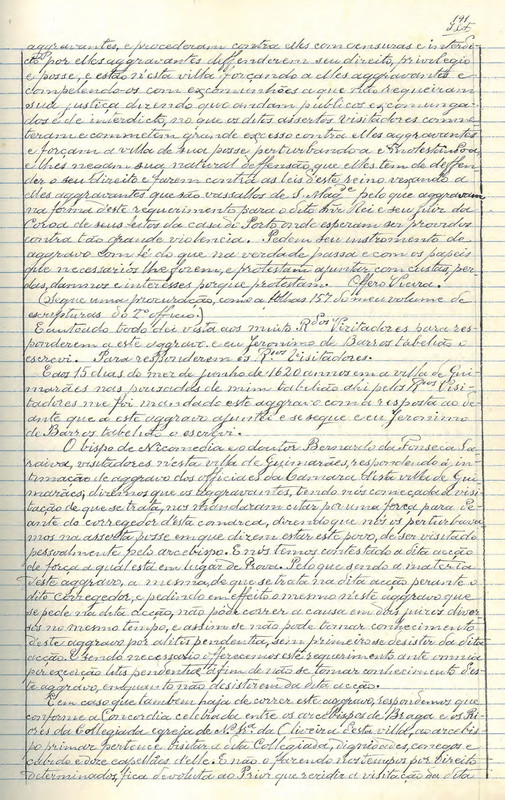 191
aggravantes, e procederam contra elles com censuras e interdi-
cto por elles aggravantes deffenderem seu direito, privilegio
e posse, e estão n'esta villa forçando a elles aggravantes e
compellendo-os com excomunhões a que não requeiram
sua justiça dizendo que andam publicos excomunga-
dos e de interdicto, no que os ditos assertos Visitadores comme-
teram e commetem grande excesso contra elles aggravantes
e forçam a villa de sua posse perturbando-a e
lhes negam sua natural deffensão que elles tem de deffen-
der o seu direito e fazem contra as leis d'este reino vexando a
elles aggravantes que são vassallos de S. Mag.e pelo que aggravam
na forma d'este requerimento para o dito Snr Rei e seu juiz da
Coroa de seus feitos da casa do Porto onde esperam ser providos
contra tão grande violencia. Pedem seu instromento de
aggravo com fé do que na verdade passa e com os papeis
que necessarios lhe forem, e protestam ajuntar com custas, per-
das, damnos e interesses porque protestam. Vieira.
(Segue uma procuração, como a folhas 157 do meu volume de
escripturas do 2º officio.)
E autoado tudo dei vista aos muito R.dos Vizitadores para res-
ponderem a este aggravo e eu Jeronimo de Barros tabelião o
escrevi. Para responderem os R.dos Visitadores.
E aos 15 dias do mez de junho de 1620 annos em a villa de Gui-
marães nas pousadas de mim tabelião ahi pelos R.dos Visi-
tadores me foi mandado este aggravo com a resposta ao di-
ante que a este aggravo ajuntei e se segue e eu Jeronimo
de Barros tabelião o escrevi.
O bispo de Nicomedia e o doutor Bernardo da Fonseca Sa-
raiva, visitadores n'esta villa de Guimarães, respondendo á in-
timação de aggravo dos officiaes da Camara d'esta villa de Gui-
marães, dizemos que os aggravantes, tendo nós começada a visi-
tação de que se trata, nos mandaram citar por uma força para de-
ante do corregedor d'esta comarca, dizendo que nós os perturbava-
mos na asserta posse em que dizem estar este povo, de ser visitado
pessoalmente pelo arcebispo. E nós temos contestado a dita acção
de força a qual está em lugar de Prova. Pelo que sendo a materia
d'este aggravo, a mesma, de que se trata na dita acção perante o
dito corregedor, e pedindo em effeito o mesmo n'este aggravo que
se pede na dita acção, não póde correr a causa em dois juizos diver-
sos no mesmo tempo, e assim se não póde tomar conhecimento
d'este aggravo por a litis pendentia, sem primeiro se desistir da dita
acção. E sendo necessario offerecemos este requerimento ante omnia
por exceição litis pendentiæ afim de não se tomar conhecimento d'es-
te aggravo, emquanto não desistirem da dita acção.
E em caso que tambem haja de correr este aggravo, respondemos que
conforme a Concordia celebrada entre os arcebispos de Braga e os Pri-
ores da Collegiada egreja de N.ª Sr.ª da Oliveira d'esta villa, ao arcebis-
po primaz pertence visitar a dita Collegiada, dignidades, conegos e
cabido e doze capellães d'elle. E não o fazendo nos tempos por direito
determinados, fica devoluta ao Prior que rezidir a visitação da dita